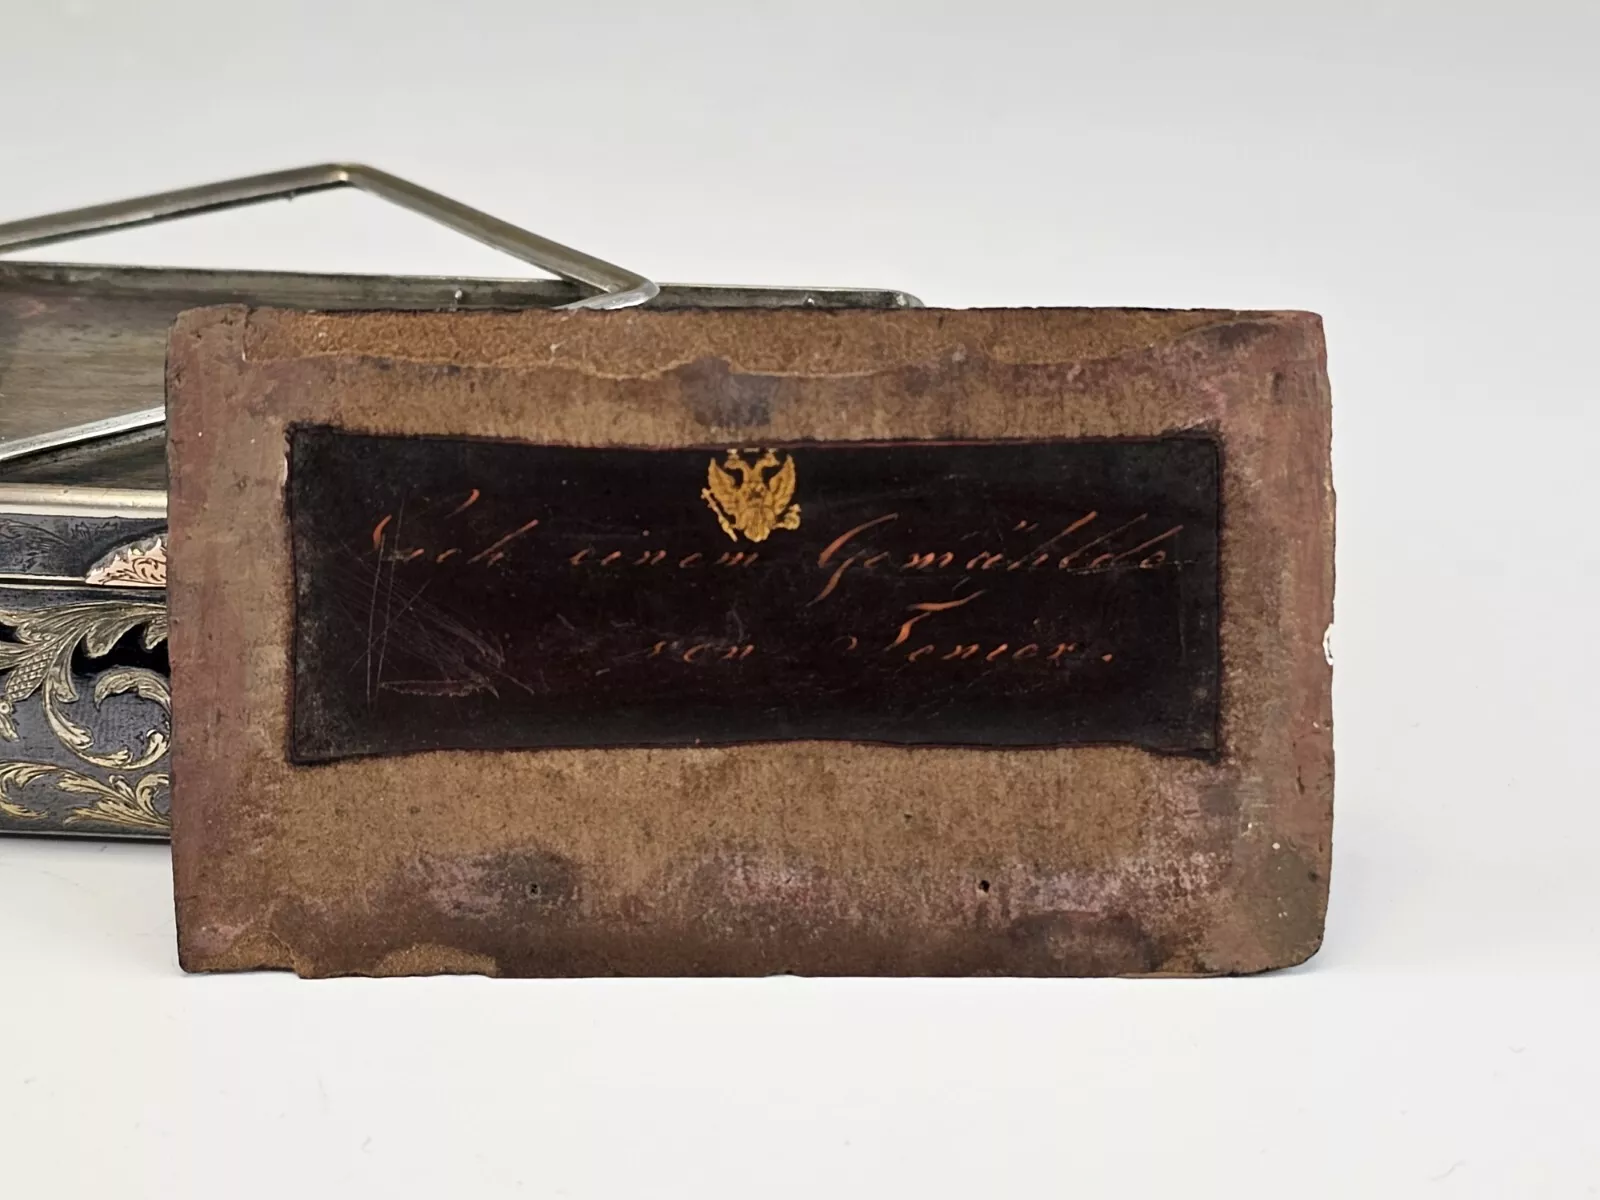 Nach einem Gemählde
von Tenier.